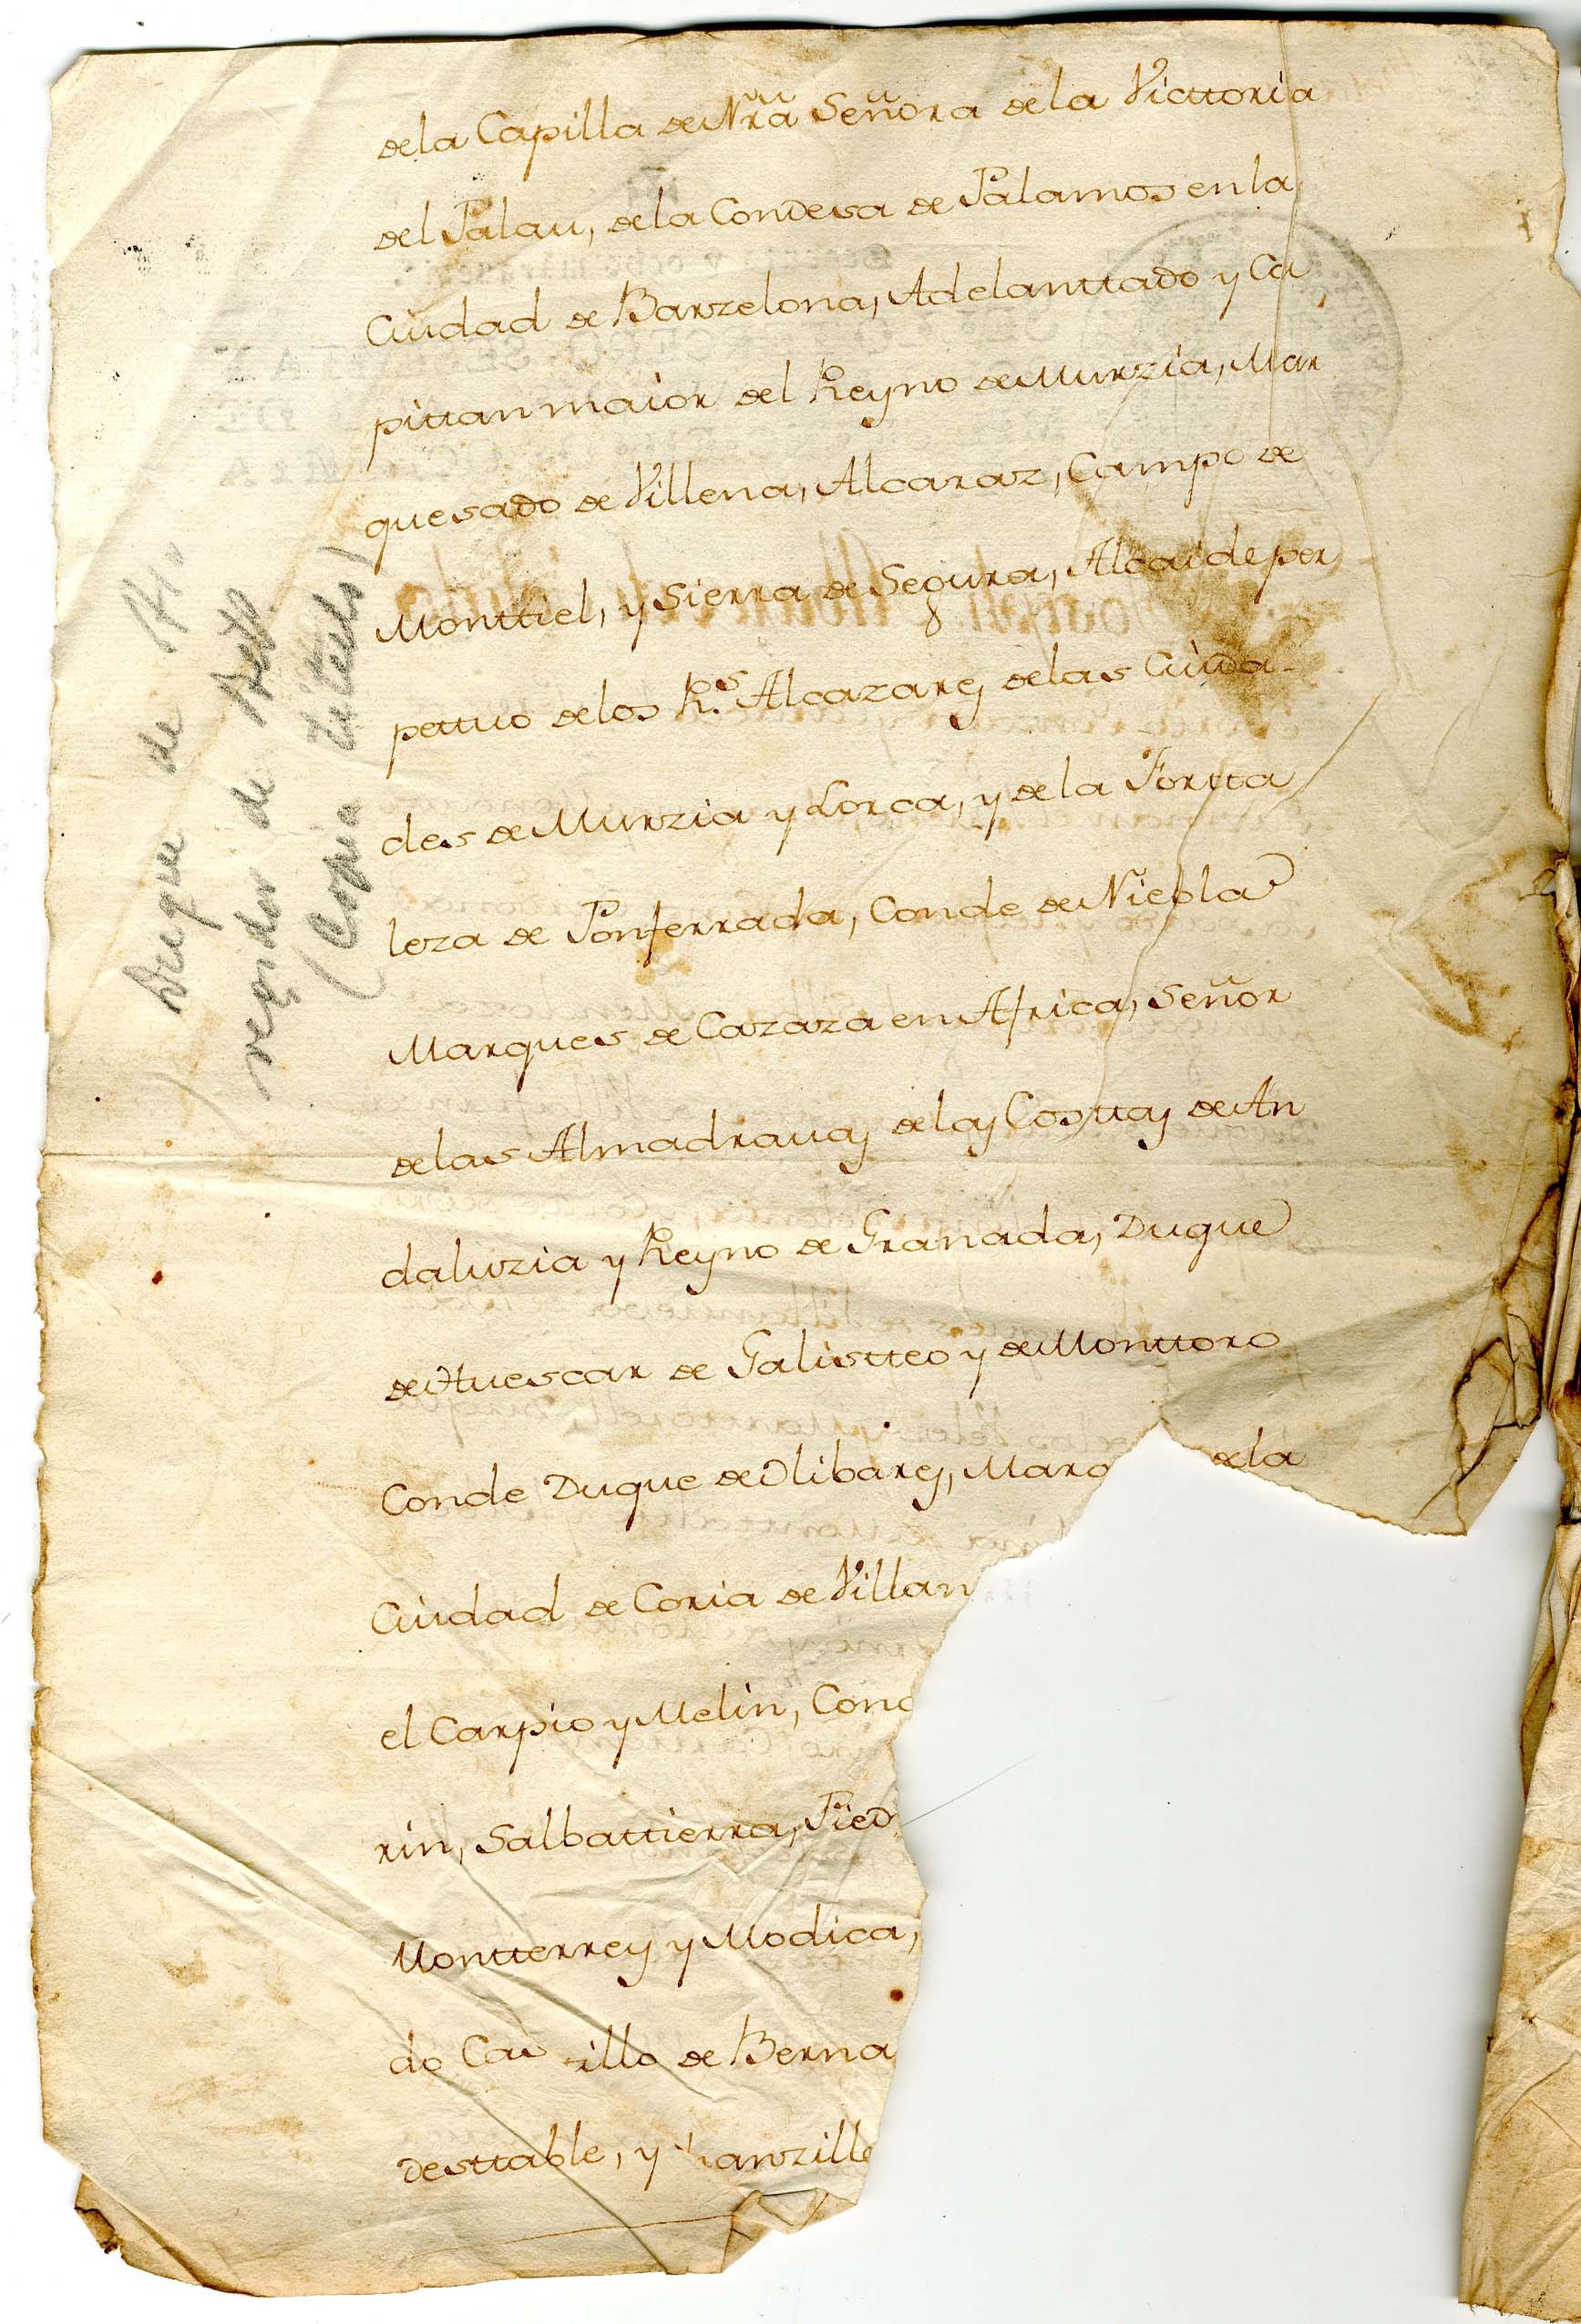 de la Capilla de Nrã Señora de la Victtoria
del Palau, de la Condesa de Palamos en la
Ciudad de Barzelona, Adelanttado y Ca
pittan maior del Reyno de Murzia, Mar
quesado de Villena, Alcaraz, Campo de
Monttiel, y Sierra de Segura, Alcaide per
pettuo de los R.s Alcazares de las Ciuda-
des de Murzia y Lorca, y de la Fortta
leza de Ponferrada, Conde de Niebla
Marques de Cazaza en Africa, Señor
de las Almadravas de las Costtas de An
daluzia y Reyno de Granada, Duque
de Huescar de Galistteo y de Monttoro
Conde Duque de Olibares, Marq de la
Ciudad de Coria de Villan
el Carpio y Melin, Cond
rin, Salbattierra, Pied
Montterrey y Modica,
do Ca illo de Berna
desttable, y anzille
Duque de
regidor de
(Copia